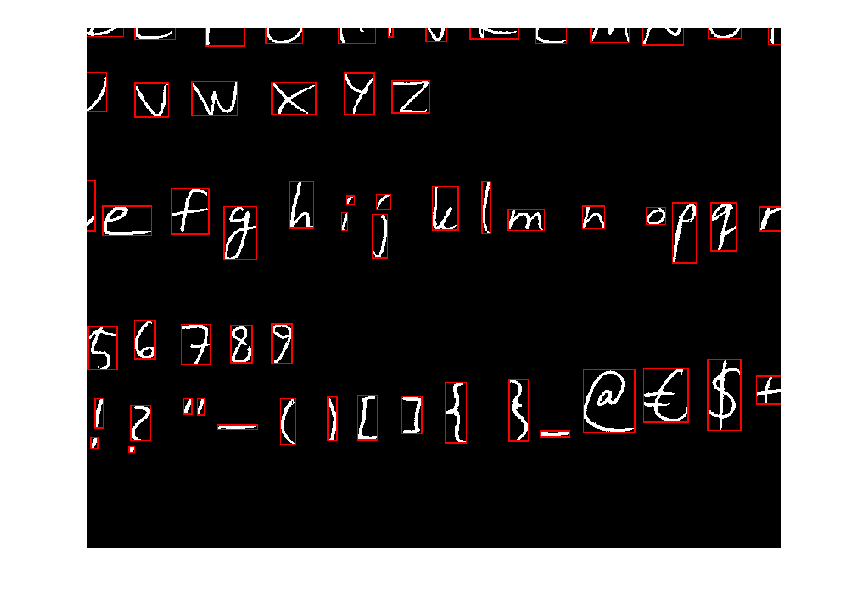 V W X Y Z
e f g h i j k l m n o p q r
5 6 7 8 9
! ? " — ( ) [ ] { } _ @ € $ +